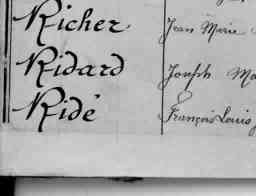 Richer Jean Marie
Ridard Joseph
Ridé François Louis